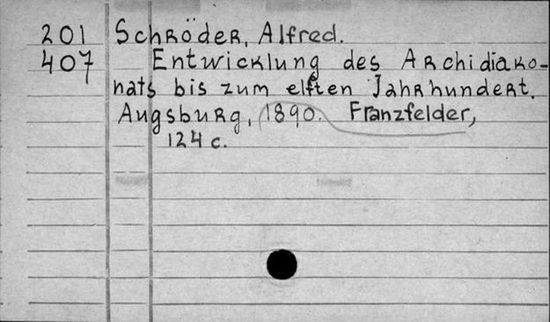 201 Schröder, Alfred.
407 Entwicklung des Archidiako-
nats bis zum elften Jahrhundert.
Augsburg, 1890. Franzfelder,
124 c.